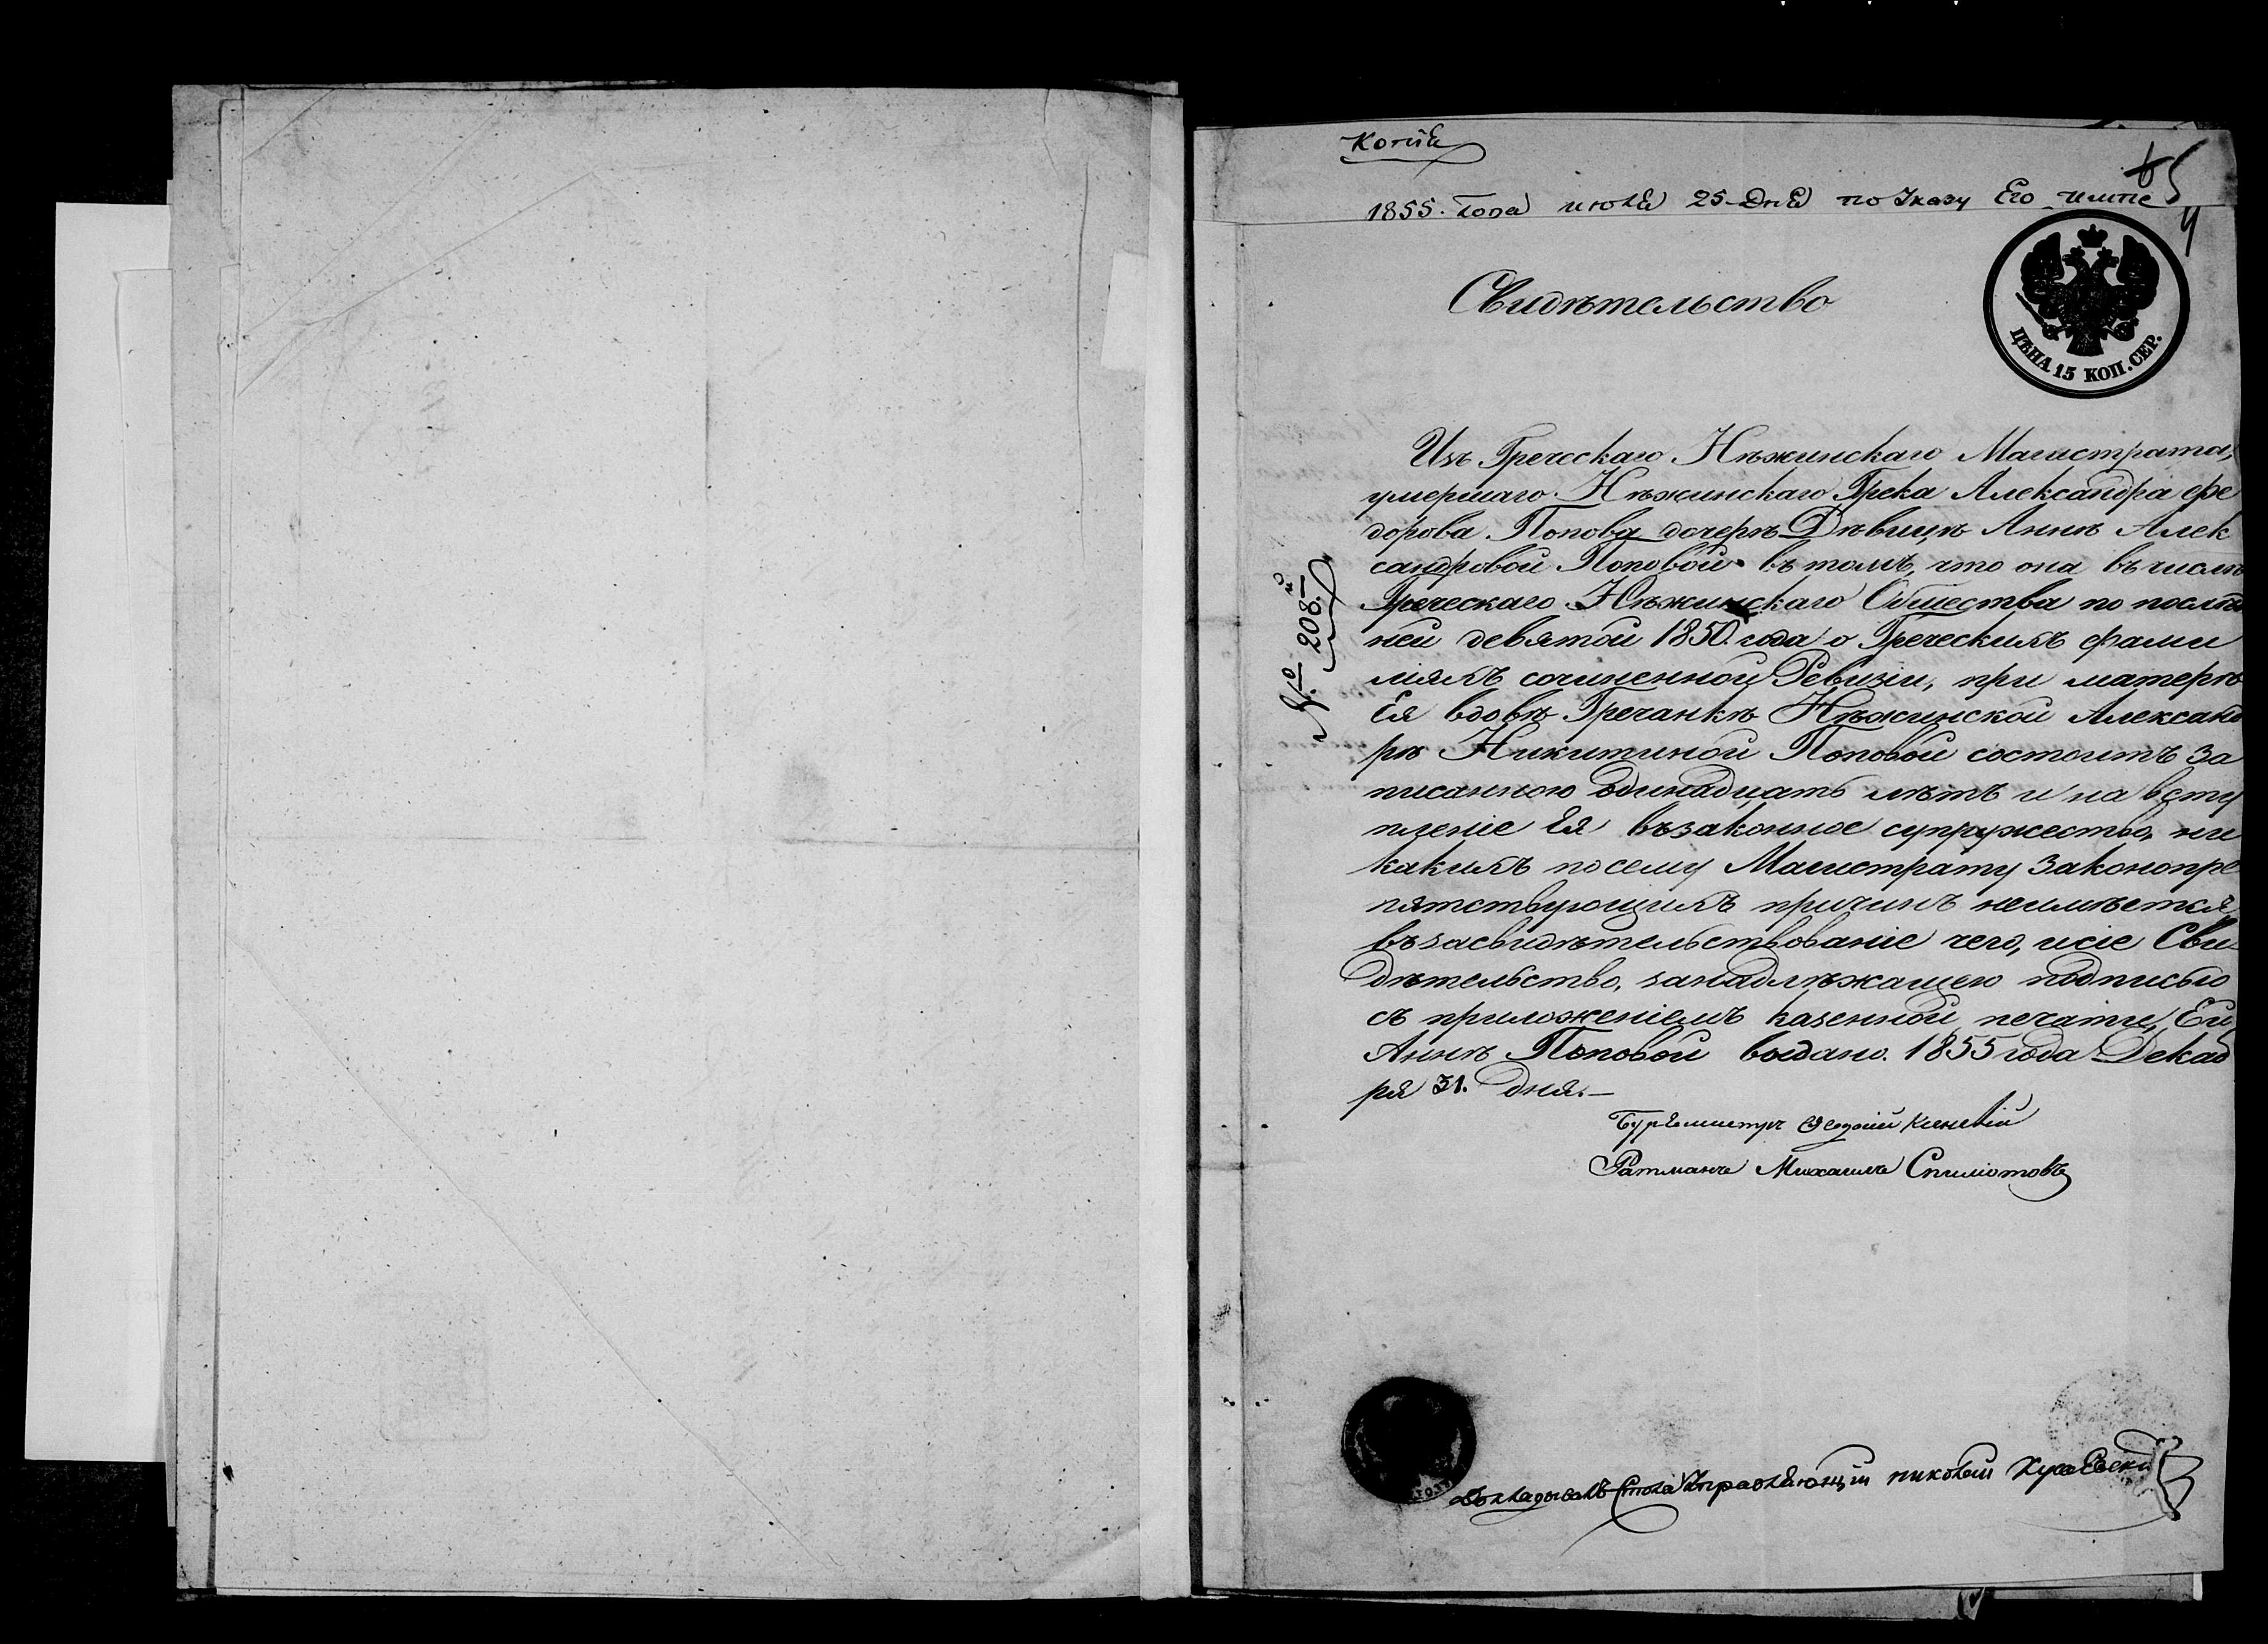 Копія
1855. года июля 25 дня по Указу Его импе
5
Свидѣтельство
ЦѢНА 15 КОП. СЕР.
Изъ Греческаго Нѣжинскаго Магистрата,
умершаго Нѣжинскаго Грека Александра Фе
дорова Попова дочерѣ Дѣвицѣ Аннѣ Алек
сандровой Поповой въ томъ, что она въ числѣ
Греческаго Нѣжинскаго Общества по послѣд
ней девятой 1850. года о Греческихъ фами
ліяхъ сочиненной Ревизіи, при матерѣ
Ея вдовѣ Гречанкѣ Нѣжинской Александ
рѣ Никитиной Поповой состоитъ за
писанною одинадцать лѣтъ и на всту
пленіе Ея въ законное супружество, ни
какихъ по сему Магистрату законопре
пятствующихъ причинъ неимѣется,
въ засвидѣтельствованіе чего, и сіе Сви
дѣтельство, за надлѣжащею подписью
съ приложеніемъ казенной печати, Ей
Аннѣ Поповой выдано. 1855 года Декаб
ря 31. дня.—
Бургомистръ
Ратманъ Михаилъ Спиліотовъ
№ 208.
Докладывалъ Столоуправляющій Николай